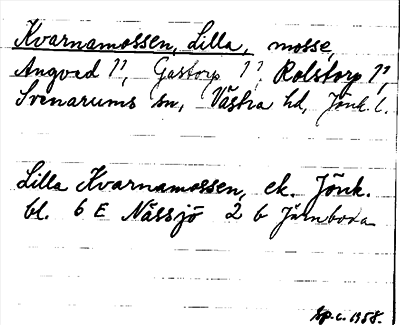 Kvarnamossen, Lilla, mosse,
Angved 1¹, Gastorp 1¹, Rolstorp 1¹,
Svenarums sn, Västra hd, Jönk. l.
Lilla Kvarnamossen, ek. Jönk.
bl. 6 E Nässjö 2 b Järnboda
Sp.c. 1958.